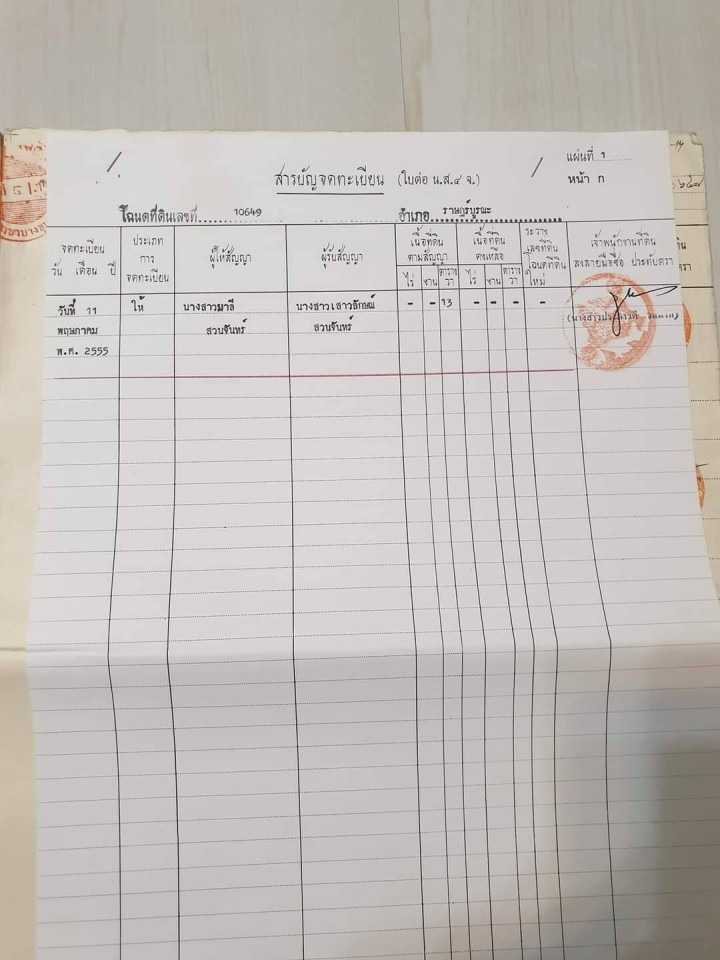 แผ่นที่ ๑
สารบัญจดทะเบียน (ใบต่อ น.ส.๔ จ.)
หน้า ก
โฉนดที่ดินเลขที่ 10649 อำเภอ ราษฎร์บูรณะ
จดทะเบียน
วัน เดือน ปี
ประเภท
การ
จดทะเบียน
ผู้ให้สัญญา
ผู้รับสัญญา
เนื้อที่ดิน
ตามสัญญา
ไร่ งาน ตารางวา
เนื้อที่ดิน
คงเหลือ
ไร่ งาน ตารางวา
ระวาง
เลขที่ดิน
โฉนดที่ดิน
ใหม่
เจ้าพนักงานที่ดิน
ลงลายมือชื่อ ประทับตรา
วันที่ 11 ให้ นางสาวมาลี นางสาวเสาวลักษณ์ - - 13 - - - -
พฤษภาคม สวนจันทร์ สวนจันทร์
พ.ศ. 2555